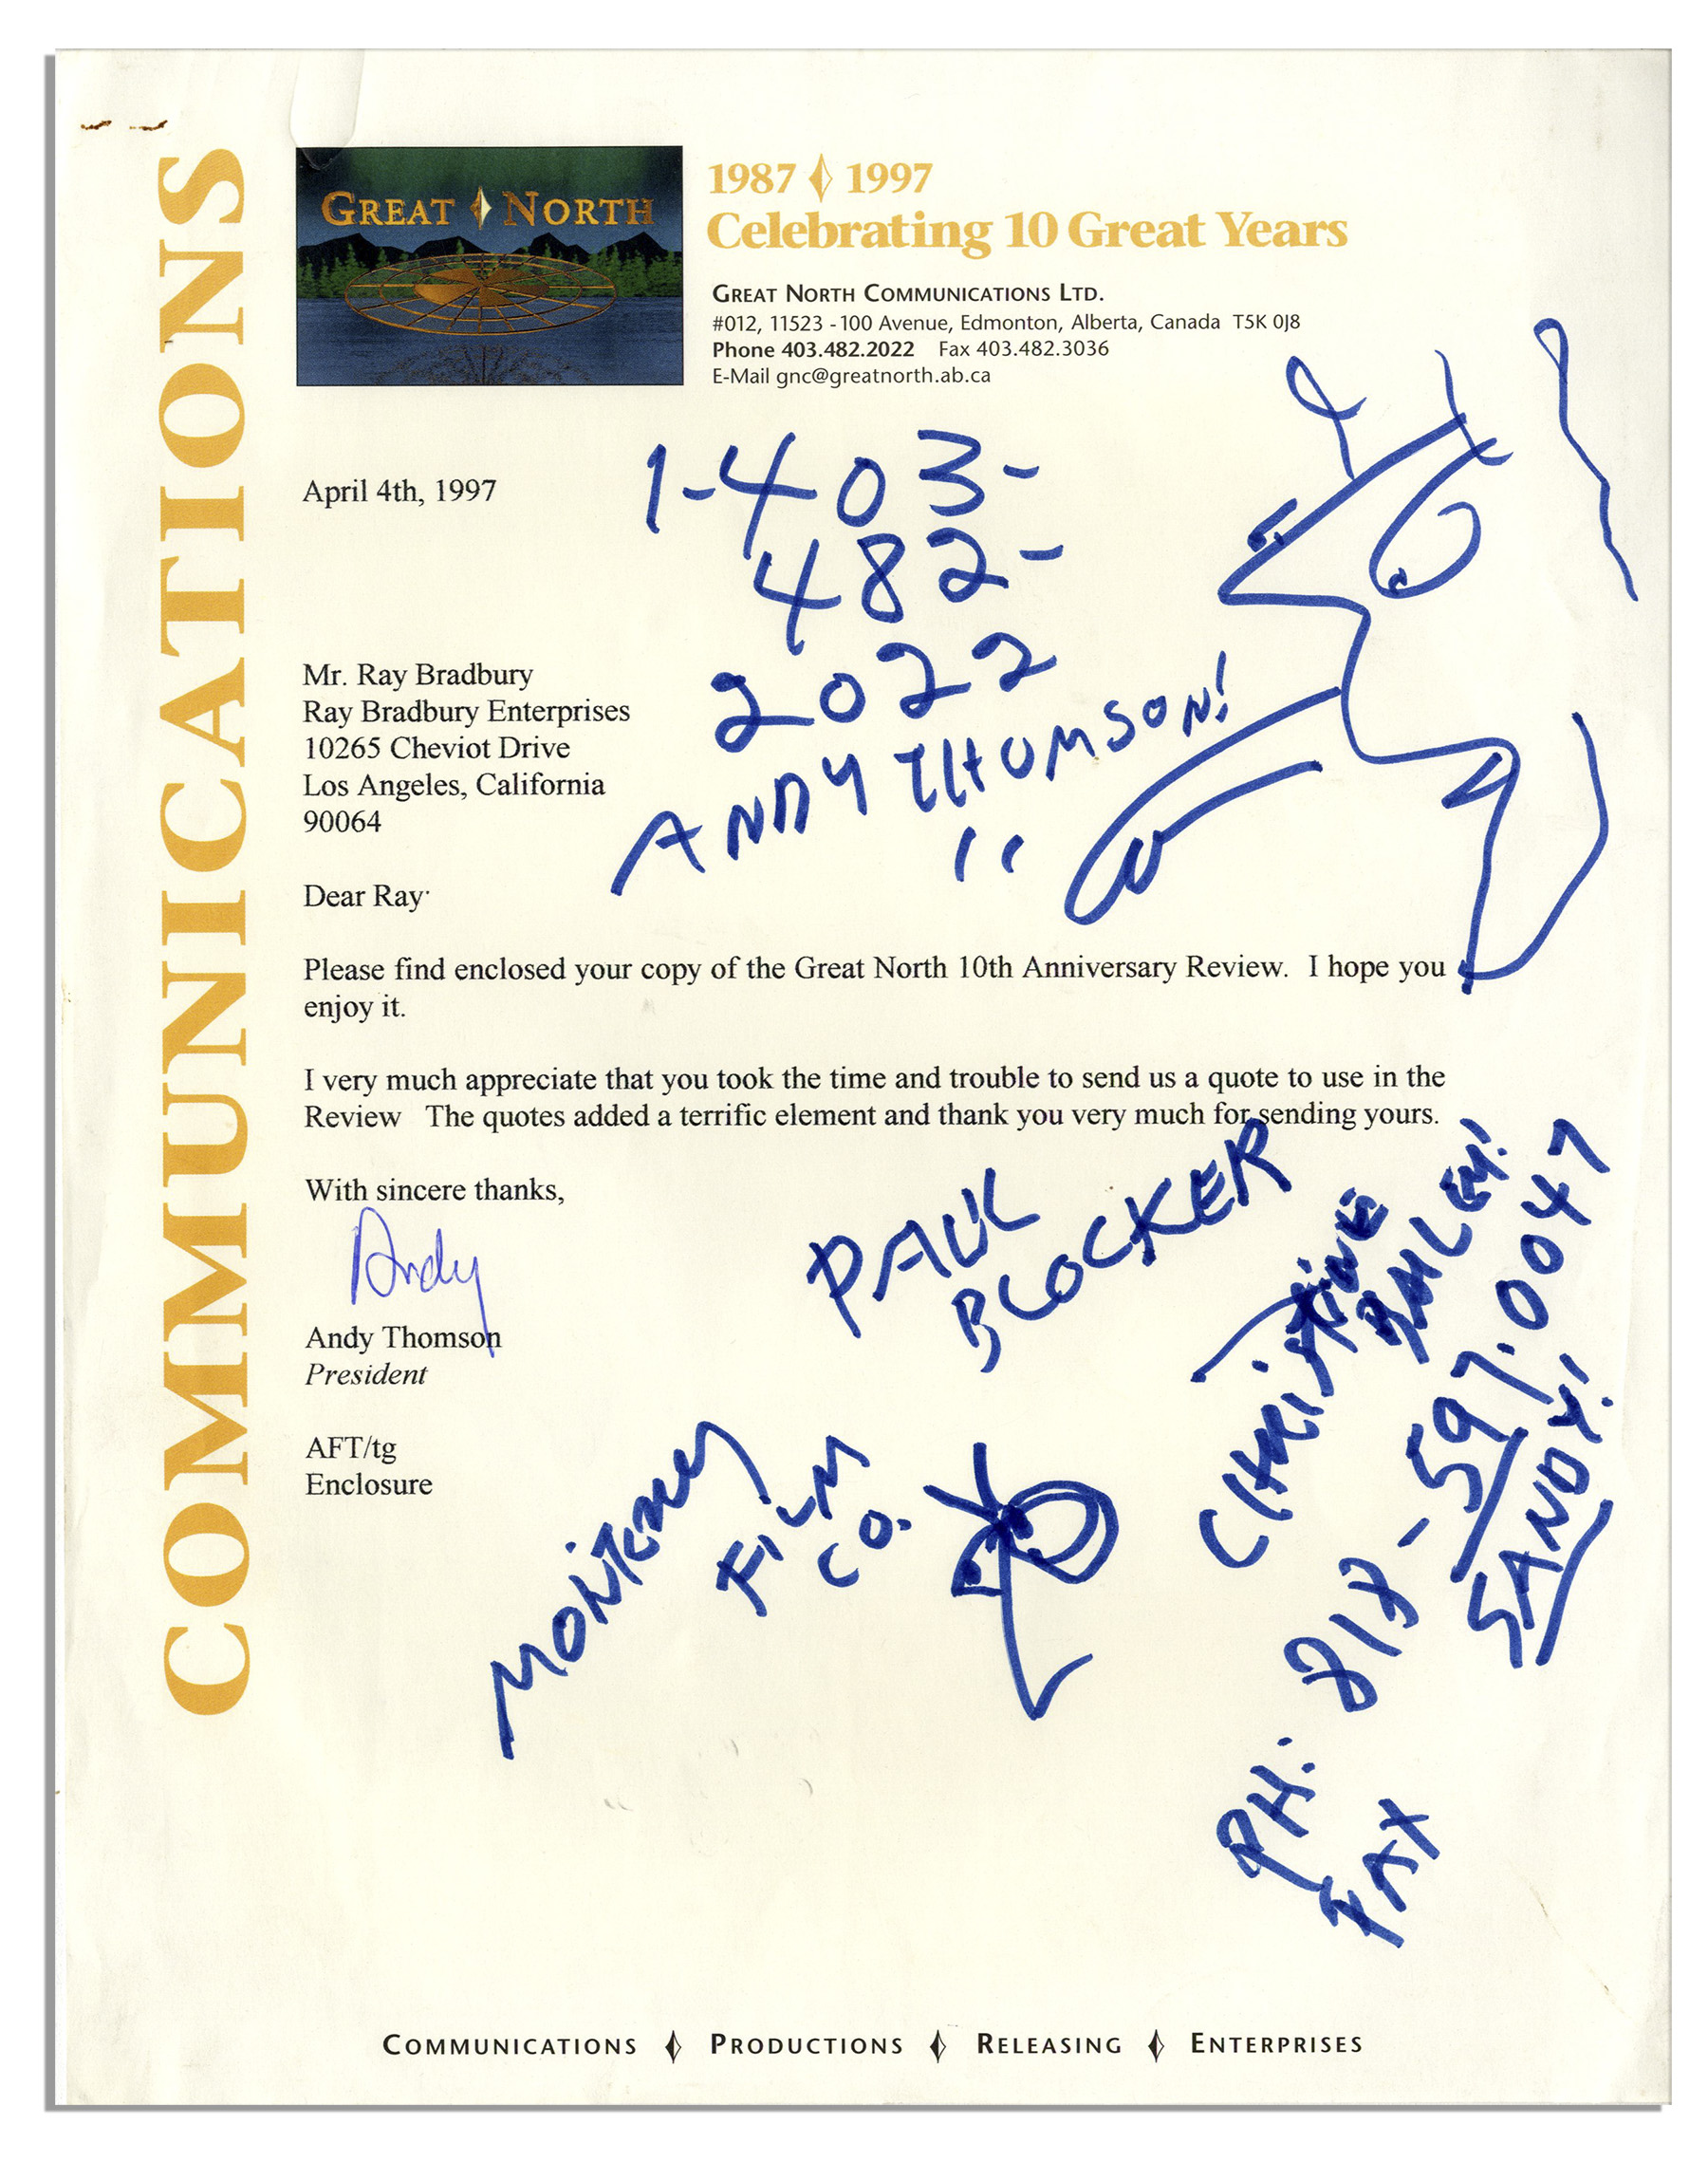 COMMUNICATIONS
GREAT NORTH
1987 1997
Celebrating 10 Great Years
GREAT NORTH COMMUNICATIONS LTD.
#012, 11523 - 100 Avenue, Edmonton, Alberta, Canada T5K 0J8
Phone 403.482.2022 Fax 403.482.3036
E-Mail gnc@greatnorth.ab.ca
April 4th, 1997
1-403-
482-
2022
ANDY THOMSON!
Mr. Ray Bradbury
Ray Bradbury Enterprises
10265 Cheviot Drive
Los Angeles, California
90064
Dear Ray
Please find enclosed your copy of the Great North 10th Anniversary Review. I hope you
enjoy it.
I very much appreciate that you took the time and trouble to send us a quote to use in the
Review The quotes added a terrific element and thank you very much for sending yours.
With sincere thanks,
Andy
Andy Thomson
President
AFT/tg
Enclosure
PAUL
BLOCKER
MONTEREY
FILM
CO.
CHRISTINE
PH: 818-597.0047
SANDY!
FAX
COMMUNICATIONS PRODUCTIONS RELEASING ENTERPRISES